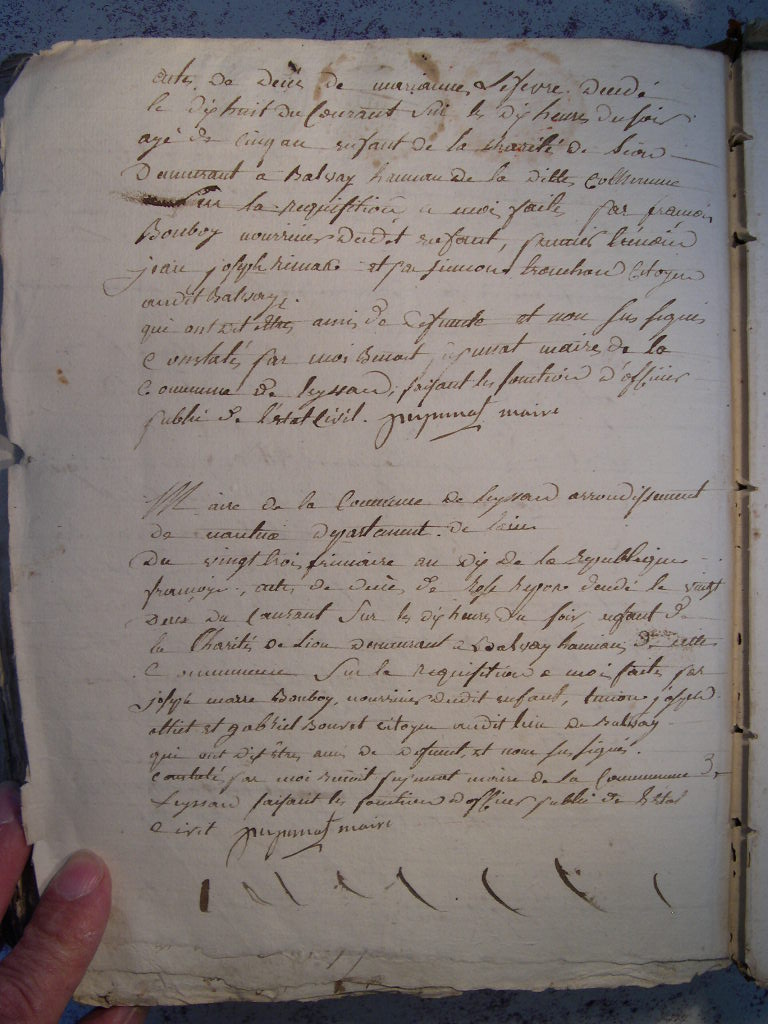 acte de deces de marianne Lefevre decedé
le dix huit du Courant sur les dix heures du soir
agé de cinq an enfant de la charité de Lion
Demeurant a Balvay hameau de la ditte Commune
Sur la requisition a moi faite par françois
Bonboy nourricier dudit enfant, premier temoin
jean joseph et par simon citoyen
audit Balvay.
qui ont dit être amis de defunte et non sus signés
Constaté par moi Benoit maire de la
Commune de leyssard, faisant les fonction d'officier
public de l'état Civil. maire
Maire de la Commune de leyssard arrondissement
de nantua departement de lain
Du vingt trois frimaire an dix de la Republique
françoise, acte de deces de Rose decedé le vingt
Deux du Courant Sur les dix heures du soir enfant de
la Charité de Lion Demeurant a Balvay hameau de cette
Commune Sur la requisition a moi faite par
joseph marie Bonboy, nourricier dudit enfant, temoin joseph
et gabriel Bouvet citoyen audit lieu de Balvay
qui ont dit êtres amis de defunt, et nom sus signés.
Constaté par moi Benoit maire de la Commune de
Leyssard faisant les fonction d'officier public de l'état
Civil maire